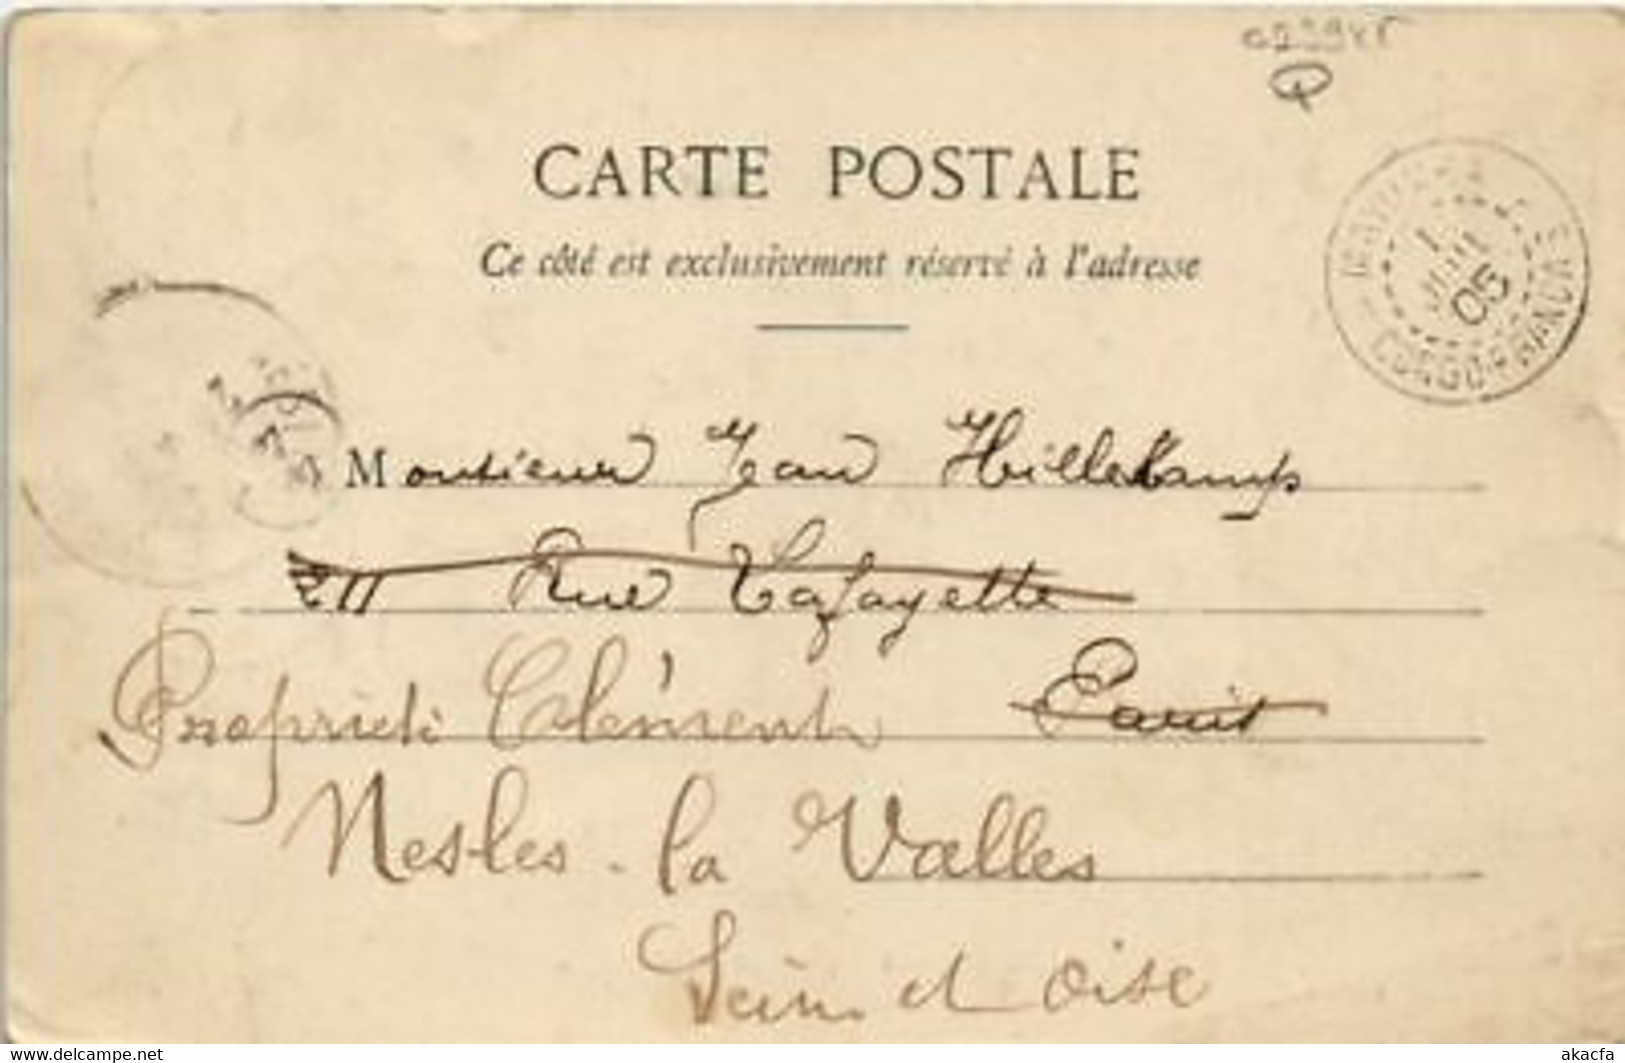 CARTE POSTALE
Ce côté est exclusivement réservé à l'adresse
1
05
CONGO FRANÇAIS
Monsieur Jean Hillekamp
211 Rue Lafayette
Paris
Propriété Clément
Nesles-la Valles
Seine et Oise
akacfa